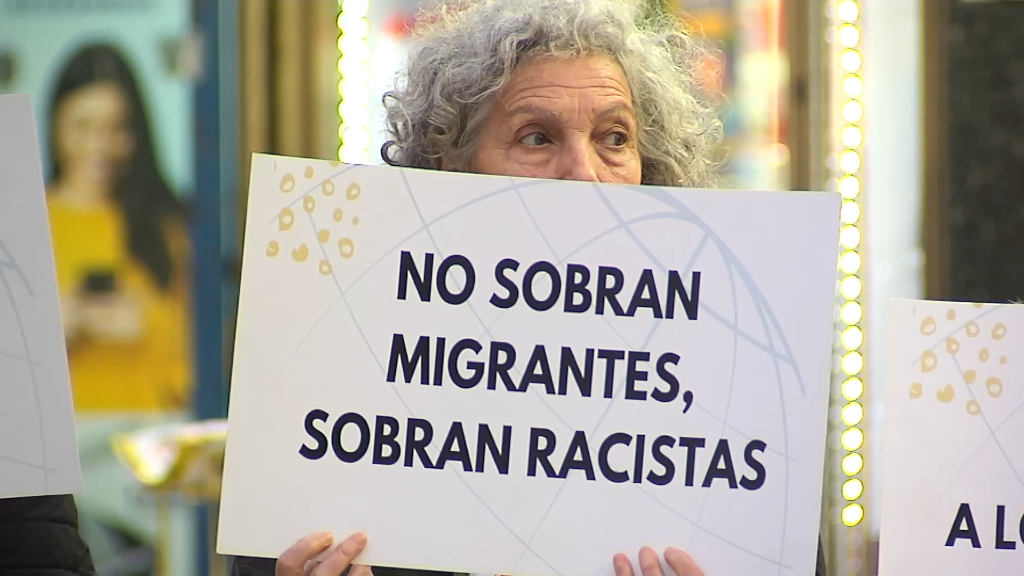 NO SOBRAN
MIGRANTES,
SOBRAN RACISTAS
A